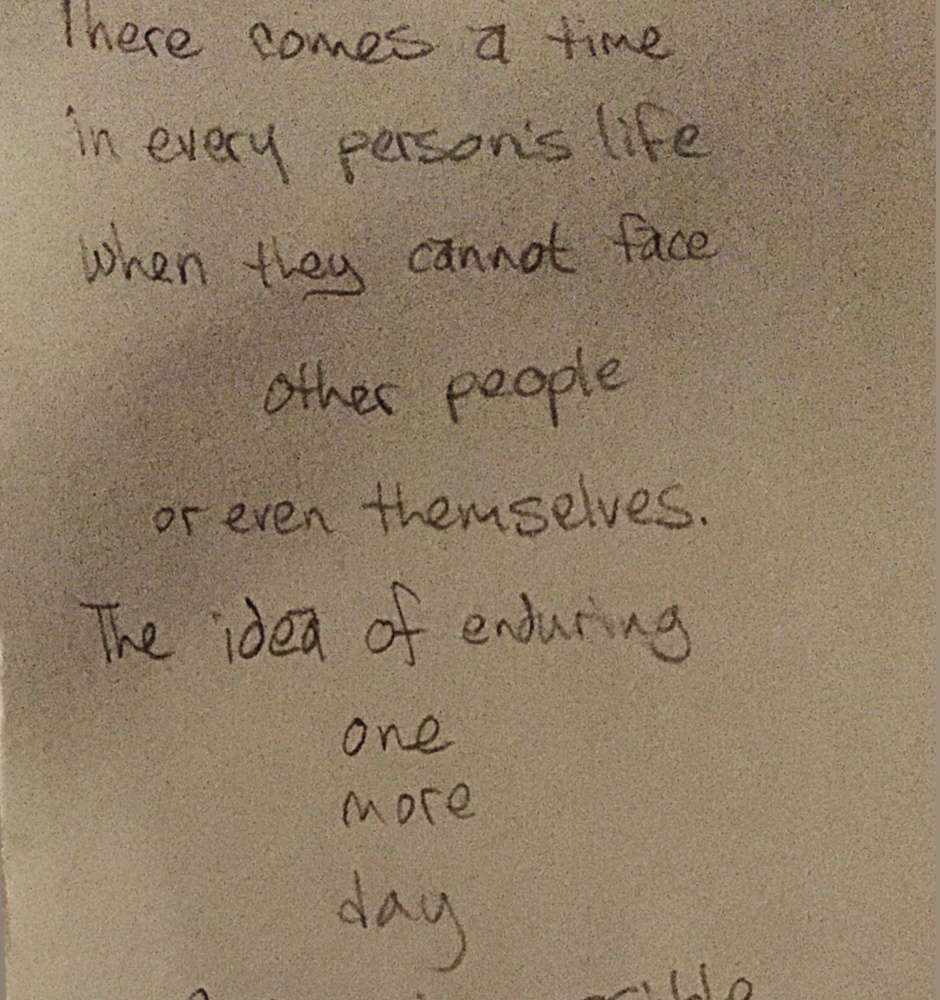 There comes a time
in every person's life
when they cannot face
other people
or even themselves.
The idea of enduring
one
more
day